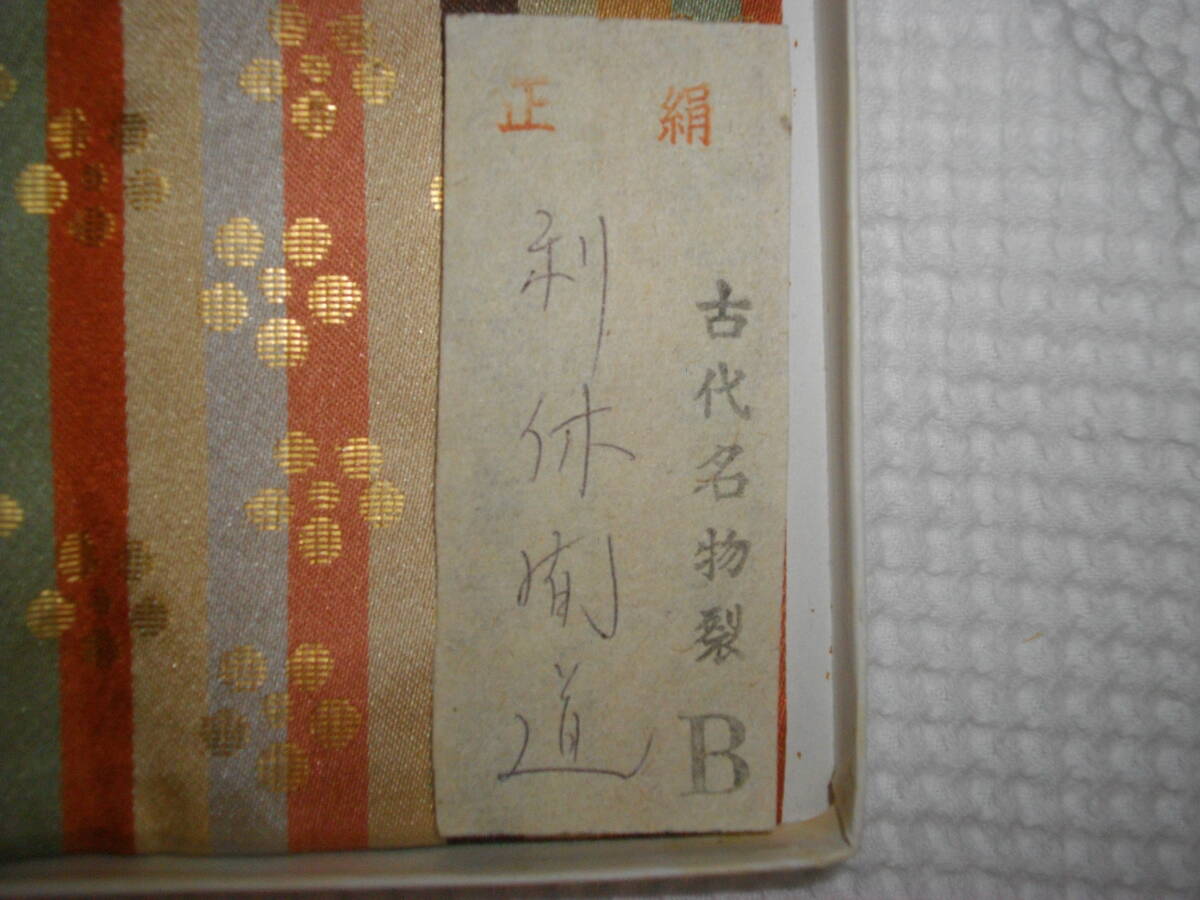 正 絹
古代名物裂 B
利休間道